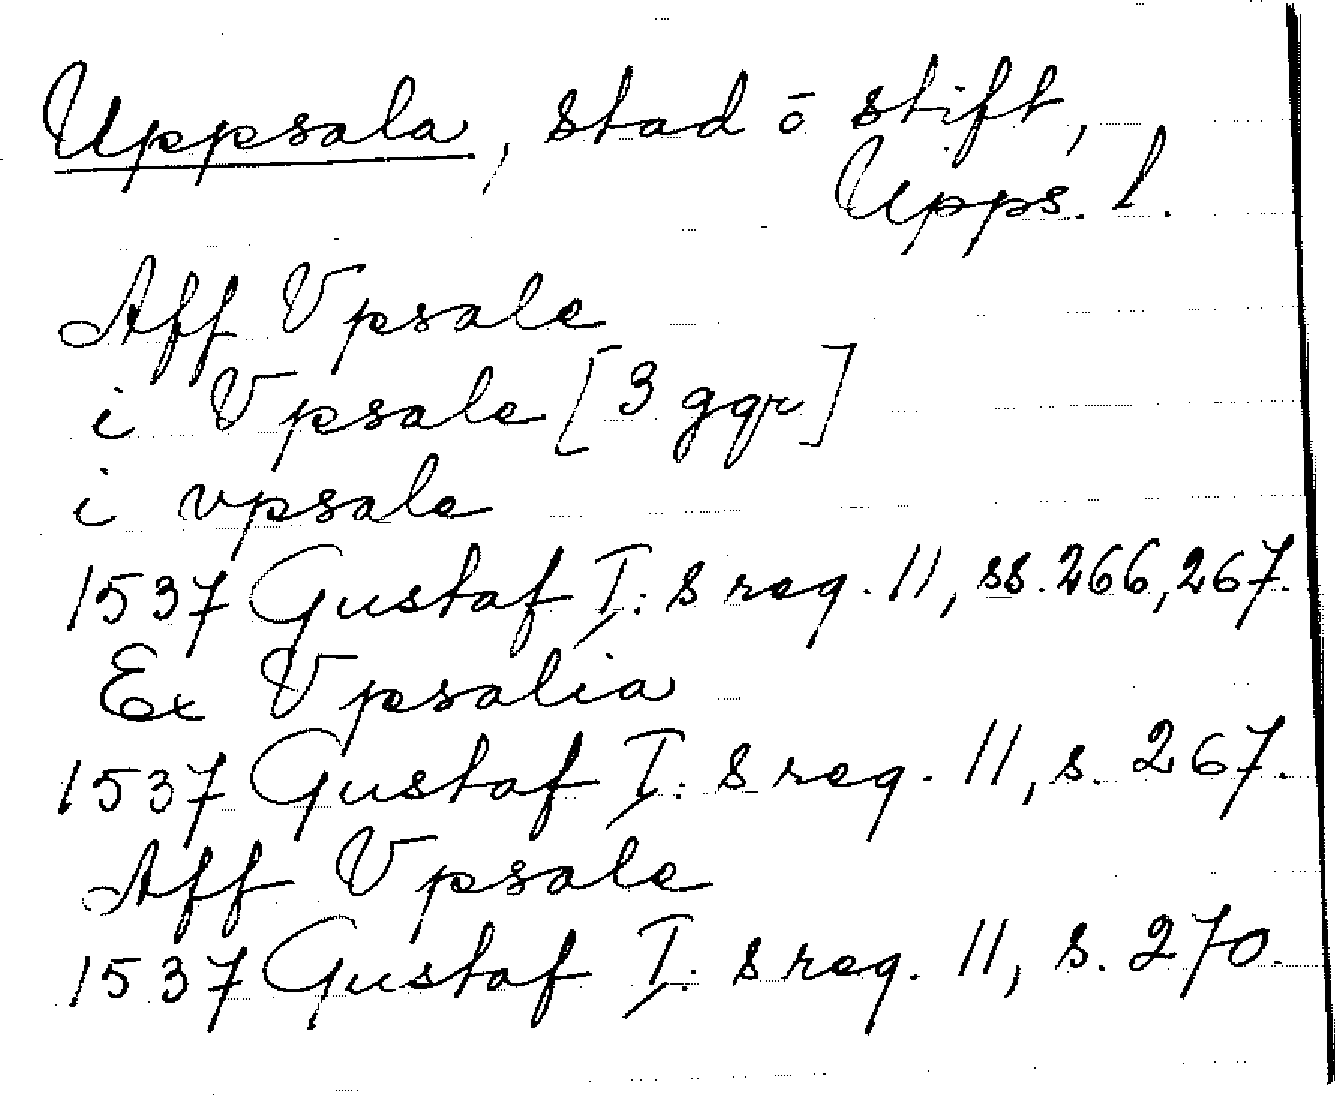 Uppsala, stad ō stift,
Upps. l.
Aff Vpsale
i Vpsale [3 ggr]
i vpsale
1537 Gustaf I:s reg. 11, ss. 266, 267.
Ex Vpsalia
1537 Gustaf I:s reg. 11, s. 267.
Aff Vpsale
1537 Gustaf I:s reg. 11, s. 270.